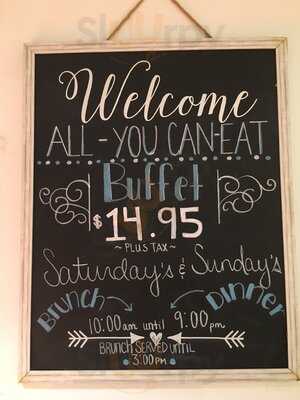 Welcome
ALL-YOU CAN-EAT
Buffet
$14.95
~ PLUS TAX ~
Saturday's & Sunday's
BRUNCH DINNER
10:00am until 9:00pm
BRUNCH SERVED UNTIL
3:00pm